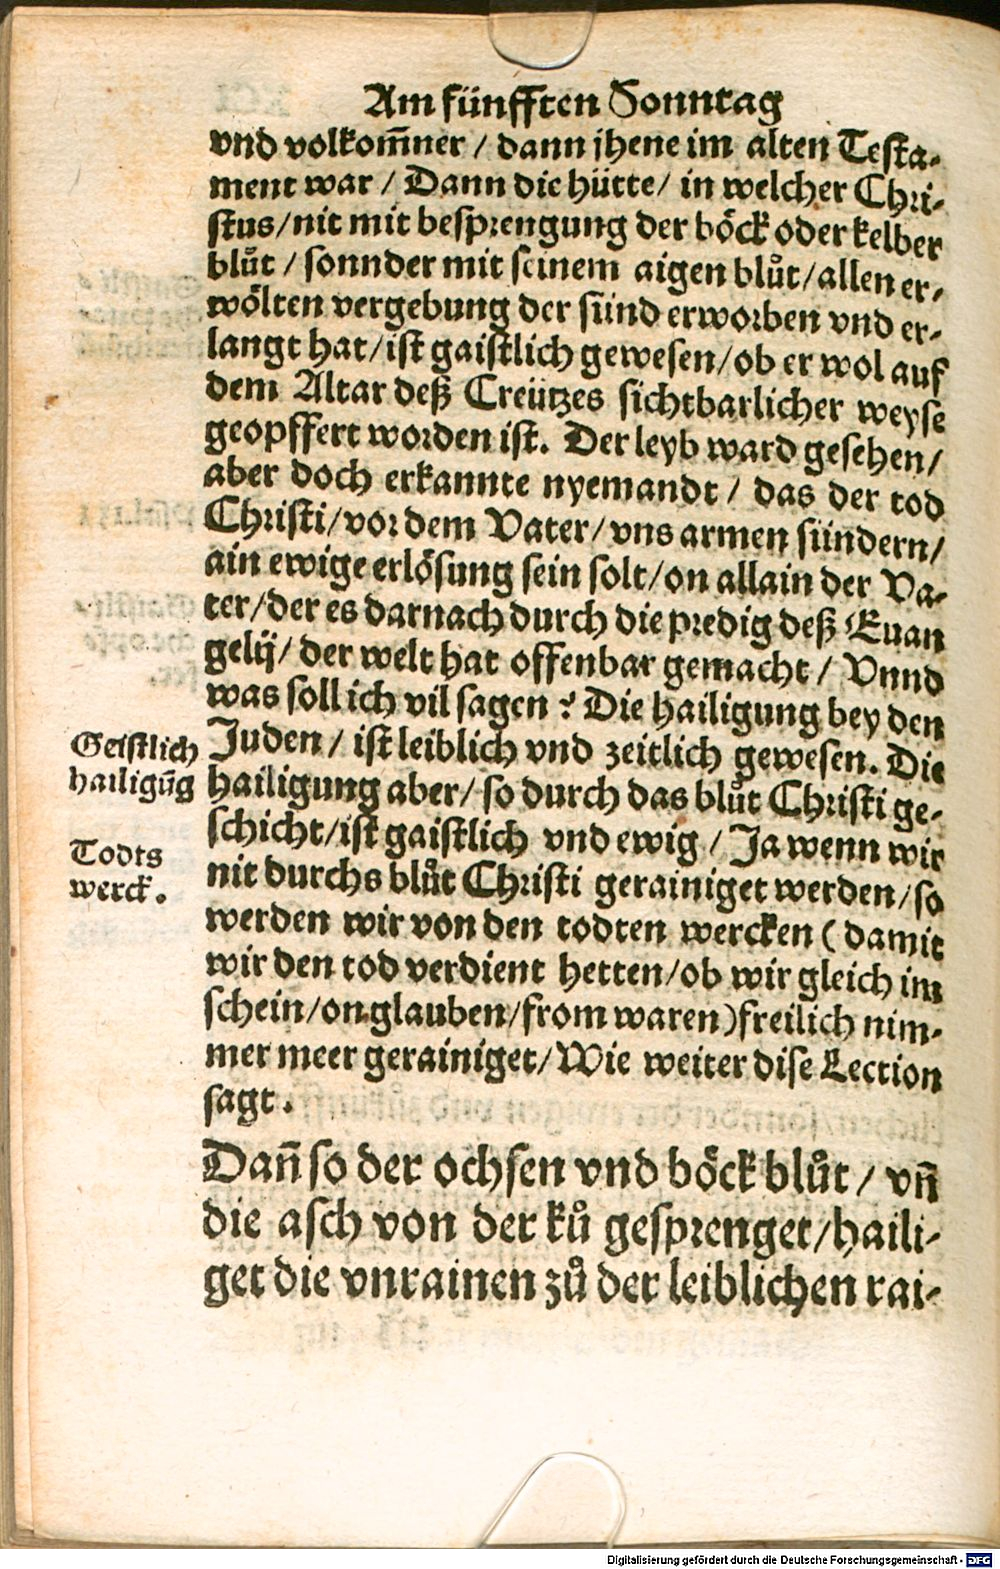 Am fünfften Sonntag
vnd volkom̃ner / dann jhene im alten Testa-
ment war / Dann die hütte / in welcher Chri-
stus / nit mit besprengung der böck oder kelber
blůt / sonnder mit seinem aigen blůt / allen er-
wölten vergebung der sünd erworben vnd er-
langt hat / ist gaistlich gewesen / ob er wol auf
dem Altar deß Creützes sichtbarlicher weyse
geopffert worden ist. Der leyb ward gesehen /
aber doch erkannte nyemandt / das der tod
Christi / vor dem Vater / vns armen sündern /
ain ewige erlösung sein solt / on allain der Va-
ter / der es darnach durch die predig deß Euan
gelij / der welt hat offenbar gemacht / Vnnd
was soll ich vil sagen ? Die hailigung bey den
Geistlich
hailigūg
Juden / ist leiblich vnd zeitlich gewesen. Die
hailigung aber / so durch das blůt Christi ge-
schicht / ist gaistlich vnd ewig / Ja wenn wir
Todts
werck.
nit durchs blůt Christi gerainiget werden / so
werden wir von den todten wercken ( damit
wir den tod verdient hetten / ob wir gleich im
schein / on glauben / from waren ) freilich nim-
mer meer gerainiget / Wie weiter dise Lection
sagt.
Dañ so der ochsen vnd böck blůt / vñ
die asch von der ků gesprenget / haili-
get die vnrainen zů der leiblichen rai-
Digitalisierung gefördert durch die Deutsche Forschungsgemeinschaft - DFG